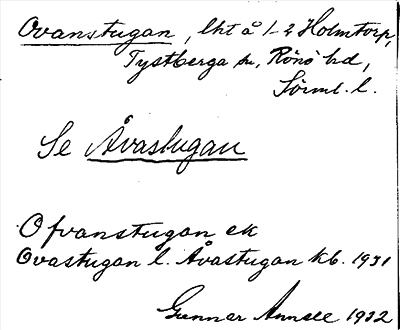 Ovanstugan, lht å 1-2 Holmtorp,
Tystberga sn, Rönö hd,
Sörml. l.
Se Åvastugan
Ofvanstugan ek
Ovastugan l. Åvastugan kb. 1931
Gunnar 1932